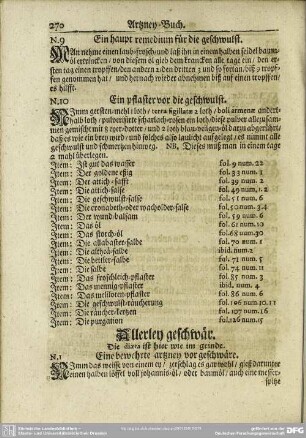 270 Artzney-Buch.
N.9 Ein haupt remedium für die geschwulst.
MAn nehme einen laub-frosch und laß ihn in einem halben seidel baum-
öl ertrincken / von diesem öl gieb dem krancken alle tage ein / den er-
sten tag einen tropffen / den andern 2 / den dritten 3 und so fortan, biß 9 tropf-
fen genommen hat / und dernach wieder abnehmen biß auf einen tropffen /
es hilfft.
N.10 Ein pflaster vor die geschwulst.
NImm gersten-mehl 1 loth / terra sigillata 2 loth / boli armenæ andert-
halb loth / pulverisirte scharlach-rosen ein loth / diese pulver alle zusam-
men gemischt mit 2 eyerdotter / und 2 loth blau
daß es wie ein brey wird / und solches also laulicht aufgelegt / es nimmt alle
geschwulst und schmertzen hinweg. NB, Dieses muß man in einem tage
2 mahl überlegen.
Item: Ist gut das wasser fol. 9 num. 22
Item: Der goldene essig fol. 33 num. 1
Item: Der attich-safft fol. 39 num. 2
Item: Die attich-salse fol. 49 num. 1.2
Item: Die geschwulst-salse fol. 51 num. 6
Item: Die cronabeth- oder wacholder-salse fol. 50 num. 3.4
Item: Der wund-balsam fol. 59 num. 6
Item: Das öl fol. 61 num. 10
Item: Das storch-öl fol. 68 num. 30
Item: Die allabaster-salbe fol. 70 num. 1
Item: Die altheä-salbe ibid. num. 2
Item: Die heitler-salbe fol. 71 num. 5
Item: Die salbe fol. 74 num. 11
Item: Das froschleich-pflaster fol. 85 num. 3
Item: Das mennig-pflaster ibid. num. 4
Item: Das meliloten-pflaster fol. 86 num. 6
Item: Die geschwulst-räucherung fol. 106 num. 10.11
Item: Die räucher-kertzen fol. 107 num. 15
Item: Die purgation fol. 126 num. 13
Allerley geschwär.
Die diæta ist hier wie im grinde.
N.1 Eine bewehrte artzney vor geschwäre.
NImm das weisse von einem ey / zerschlag es gar wohl / gieß darunter
einen halben löffel voll johannis-öl / oder baumöl / auch eine messer-
spitz